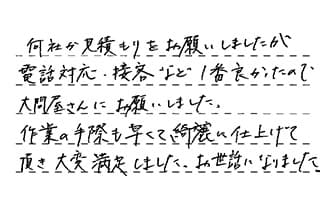 何社か見積もりをお願いしましたが
電話対応・接客など1番良かったので
大問屋さんにお願いしました。
作業の手際も早くて綺麗に仕上げて
頂き大変満足しました。お世話になりました